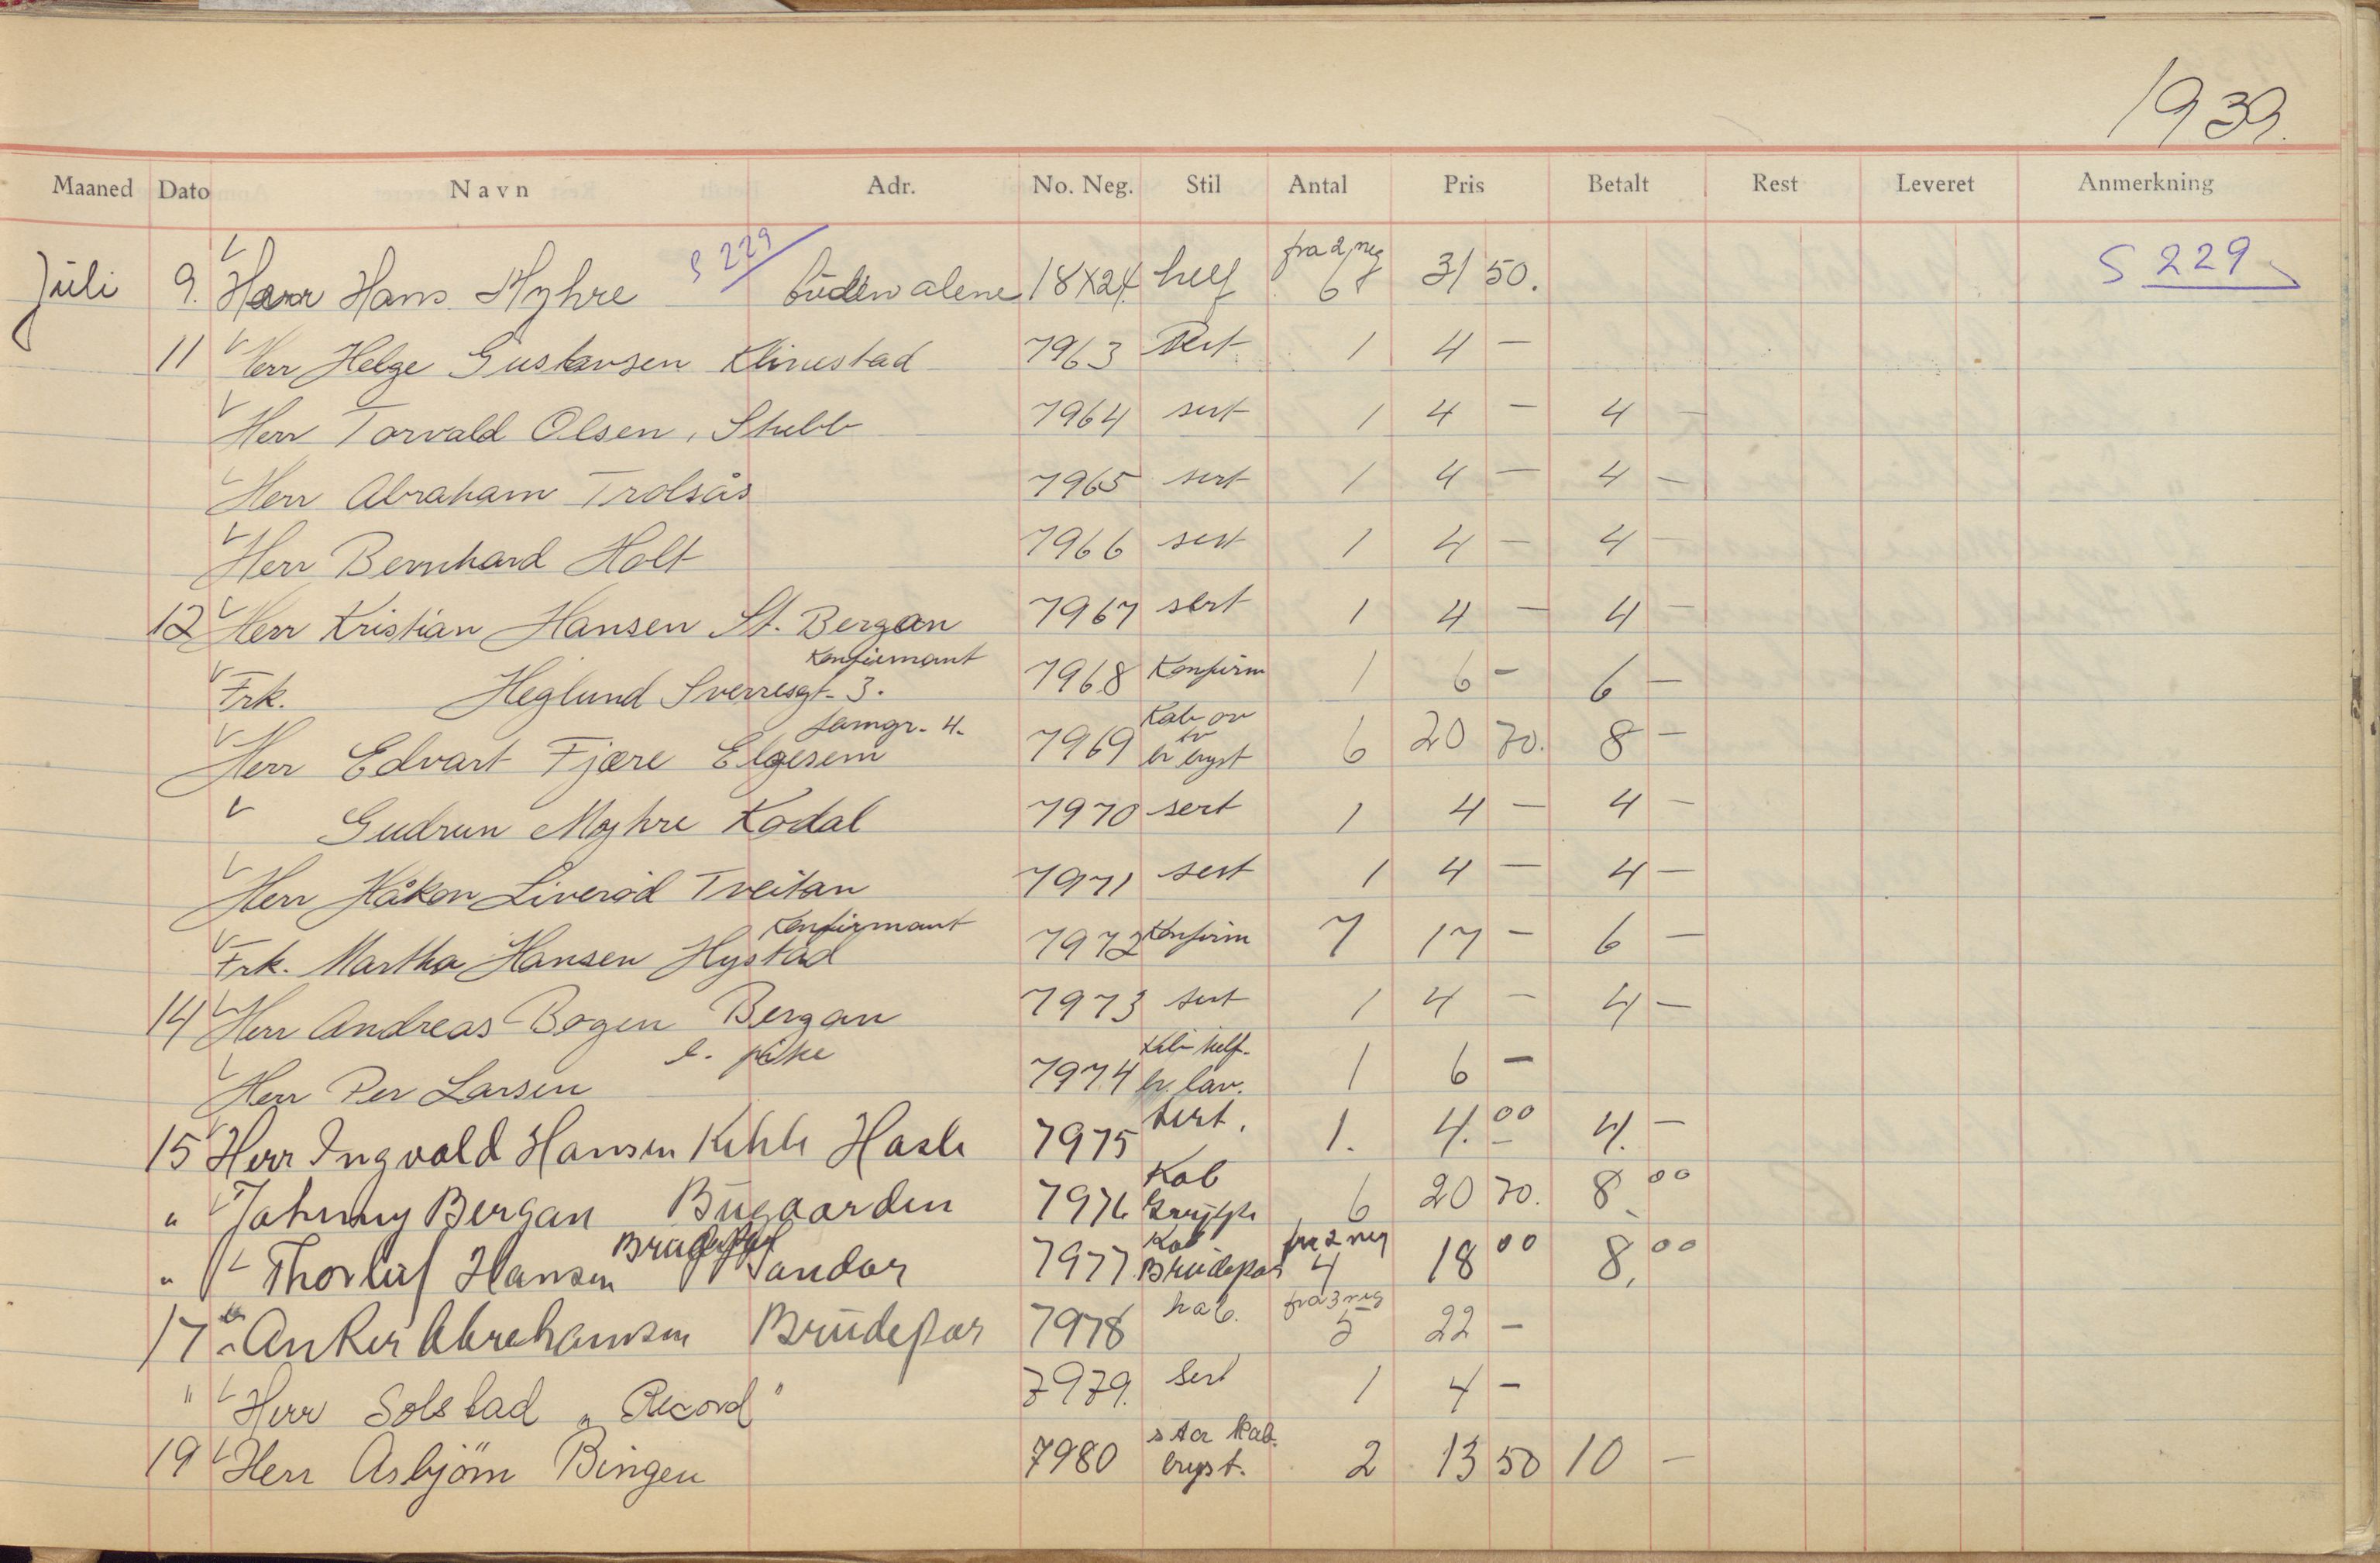 1939.
Maaned Dato Navn Adr. No. Neg. Stil Antal Pris Betalt Rest Leveret Anmerkning
Juli 9. Herr Hans Myhre S 229 alene 18x24 helf fra 2 neg 6 31 50. S 229
11 Herr Helge Gustavsen Klinestad 7963 sert 1 4 -
Herr Torvald Olsen, Stubb 7964 sert 1 4 - 4 -
Herr Abraham Trolsås 7965 sert 1 4 - 4 -
Herr Bernhard Holt 7966 sert 1 4 - 4 -
12 Herr Kristian Hansen St. Bergan 7967 sert 1 4 - 4 -
Konfirmant
Frk. Heglund Sverresgt. 3. 7968 Konfirm 1 6 - 6 -
famgr. 4.
Herr Edvart Fjære Elgesem 7969 Kab br bryst 6 20 70. 8 -
Gudrun Myhre Kodal 7970 sert 1 4 - 4 -
Herr Håkon Liverød Tveitan 7971 sert 1 4 - 4 -
Konfirmant
Frk. Martha Hansen Hystad 7972 Konfirm 7 17 - 6 -
14 Herr Andreas Bogen Bergan 7973 sert 1 4 - 4 -
l. pike
Herr Per Larsen 7974 helf. 1 6 -
15 Herr Ingvald Hansen Hasle 7975 sert. 1. 4.00 4. -
" Johnny Bergan Bugaarden 7976 Kab Gruppe 6 20 70. 8 00
Brudepar
" Thorleif Hansen Sandar 7977 Kab Brudepar fra 2 neg 4 18 00 8, 00
17 " Anker Abrahamsen Brudepar 7978 kab. fra 3 neg 5 22 -
" Herr Solstad "Record" 7979. Sert 1 4 -
19 Herr Asbjörn Bingen 7980 stor Kab. bryst. 2 13 50 10 -